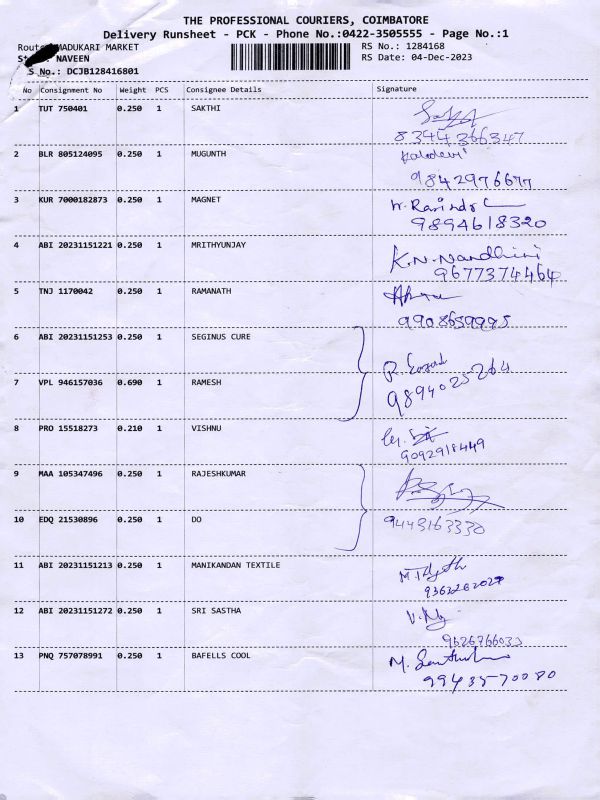 THE PROFESSIONAL COURIERS, COIMBATORE
Delivery Runsheet - PCK - Phone No.:0422-3505555 - Page No.:1
Route: MADUKARI MARKET
RS No.: 1284168
NAVEEN
RS Date: 04-Dec-2023
S No.: DCJB128416801
No Consignment No Weight PCS Consignee Details Signature
1 TUT 750401 0.250 1 SAKTHI
8344366347
2 BLR 805124095 0.250 1 MUGUNTH Kaladevi
9842976677
3 KUR 7000182873 0.250 1 MAGNET
9894618320
4 ABI 20231151221 0.250 1 MRITHYUNJAY K.N.Nandhini
9677374464
5 TNJ 1170042 0.250 1 RAMANATH
9908659995
6 ABI 20231151253 0.250 1 SEGINUS CURE
7 VPL 946157036 0.690 1 RAMESH 9894025264
8 PRO 15518273 0.210 1 VISHNU
9092918449
9 MAA 105347496 0.250 1 RAJESHKUMAR
10 EDQ 21530896 0.250 1 DO 9443163330
11 ABI 20231151213 0.250 1 MANIKANDAN TEXTILE
12 ABI 20231151272 0.250 1 SRI SASTHA
9626766033
13 PNQ 757078991 0.250 1 BAFELLS COOL
99435-70080